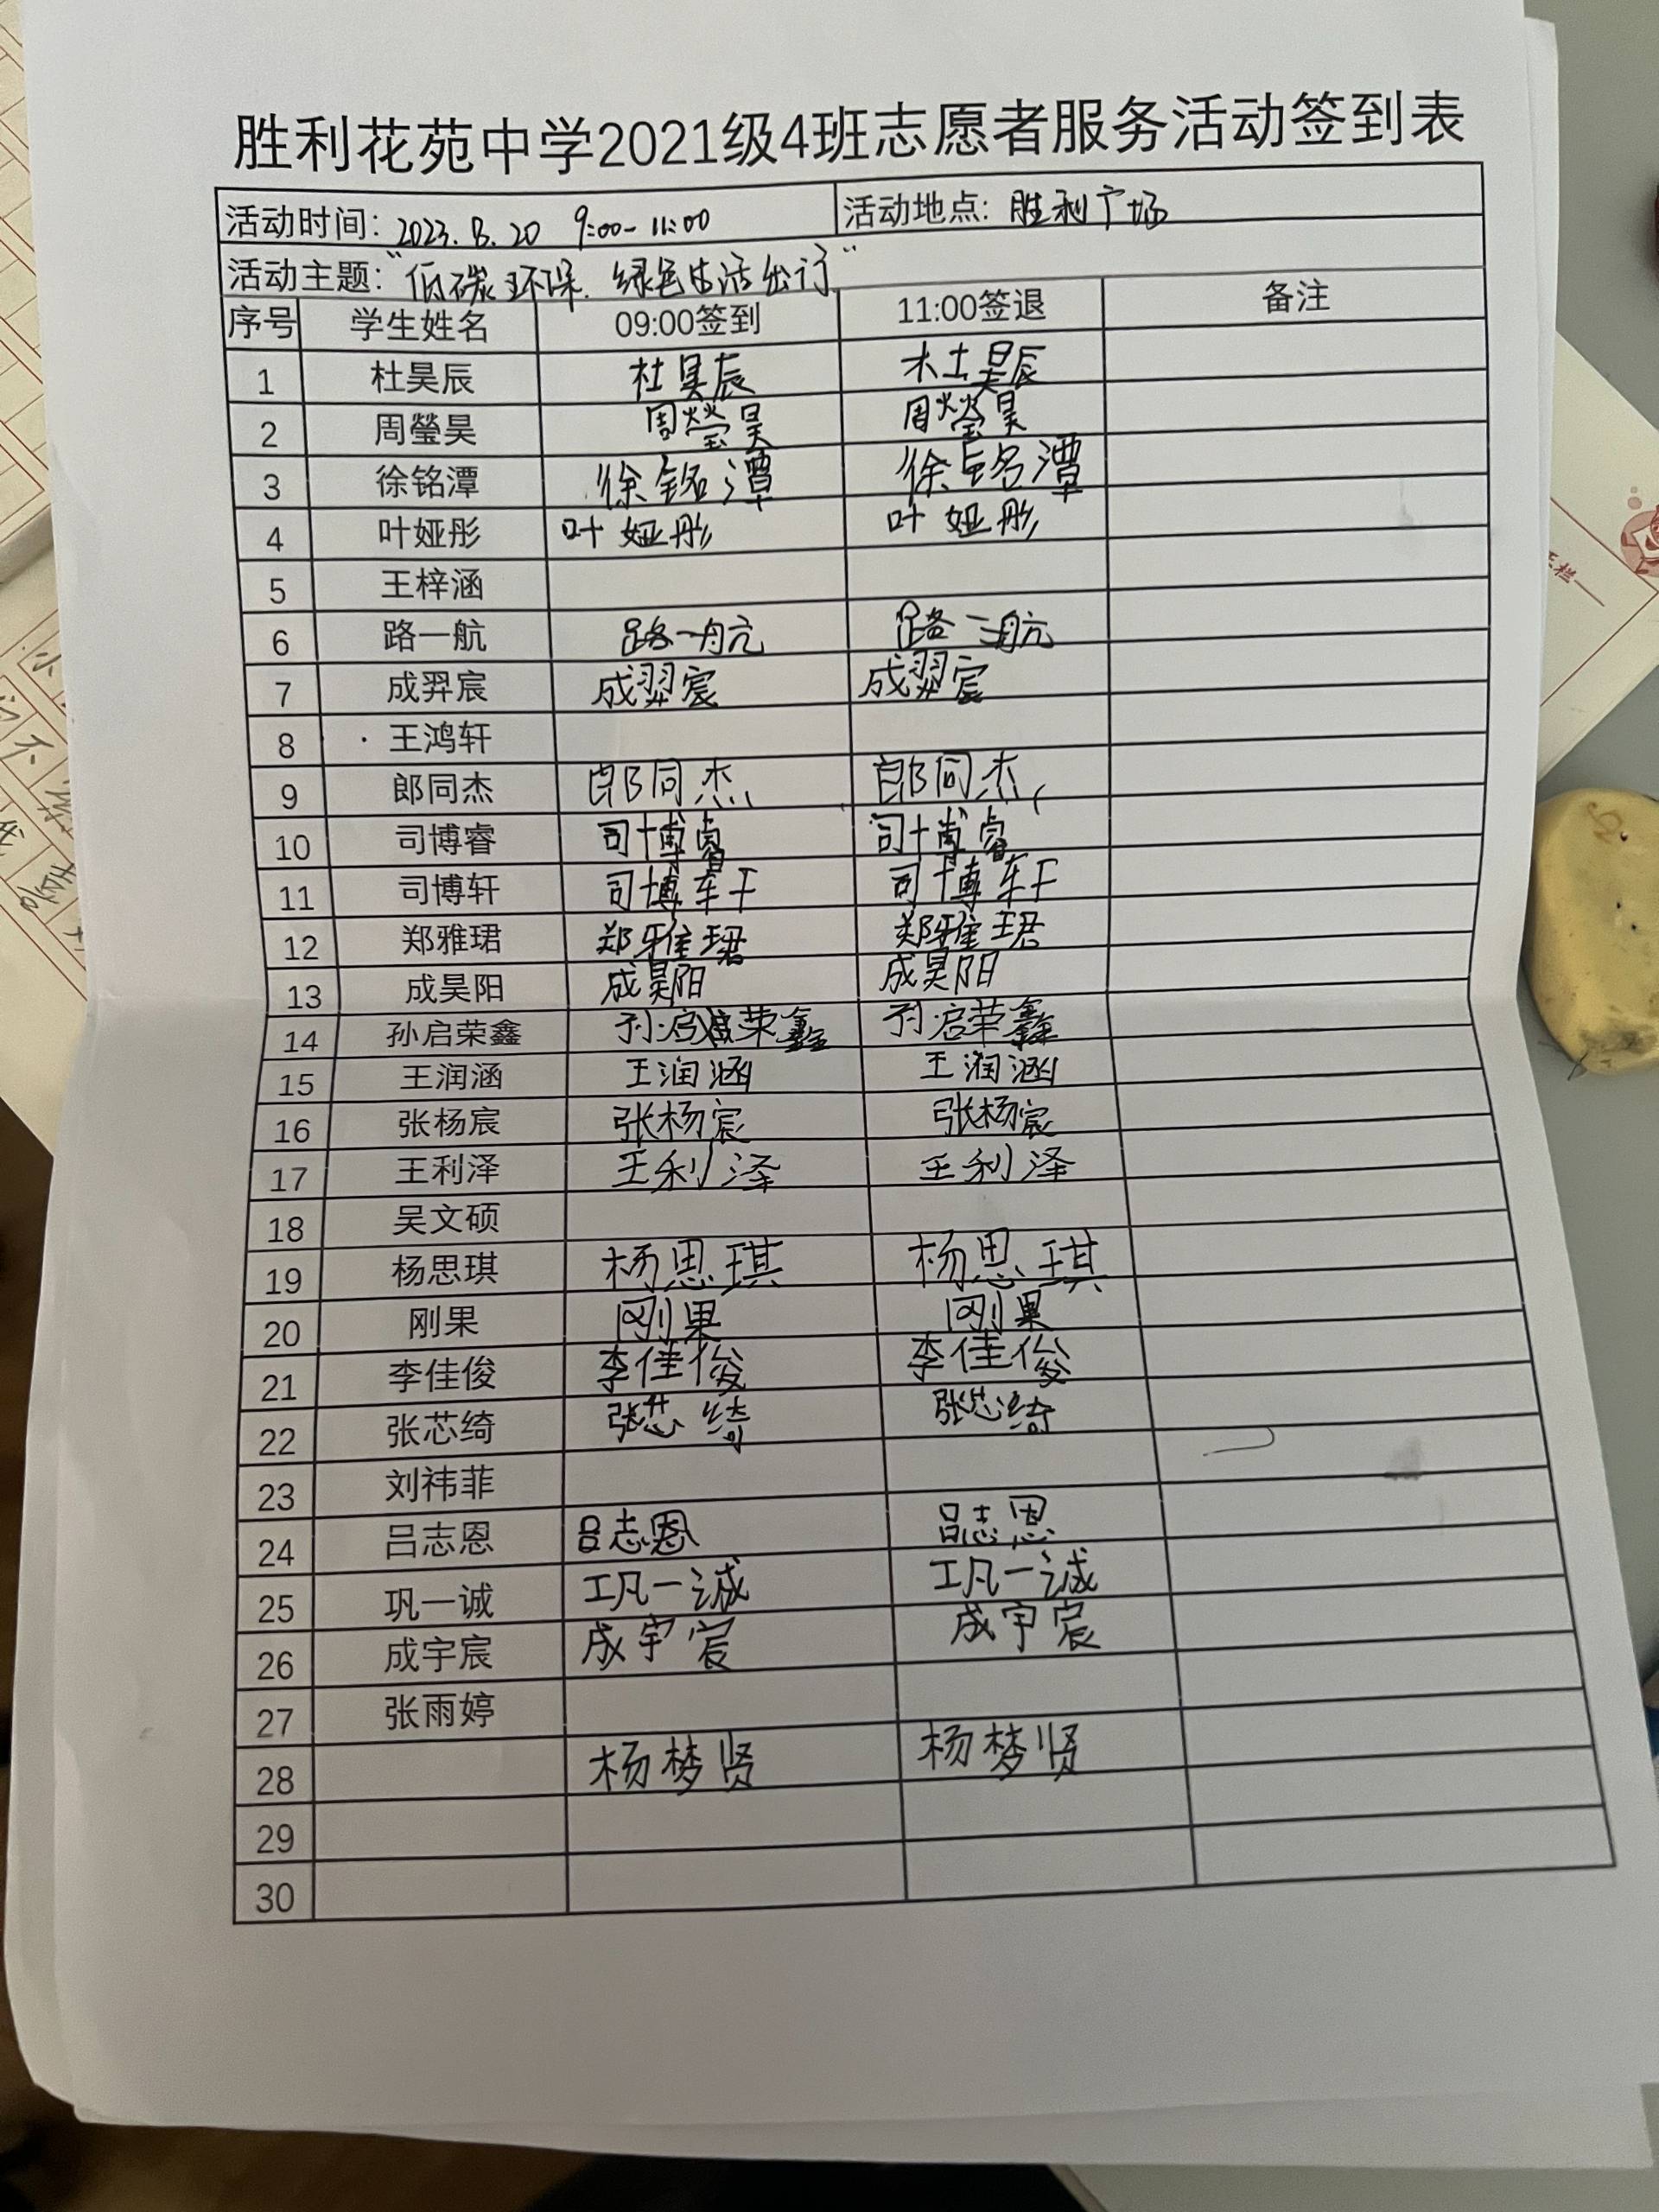 胜利花苑中学2021级4班志愿者服务活动签到表
活动时间: 2023.8.20 9:00-11:00 活动地点: 胜利广场
活动主题:“低碳环保.绿色生活出订”
序号 学生姓名 09:00签到 11:00签退 备注
1 杜昊辰 杜昊辰 杜昊辰
2 周瑩昊 周瑩昊 周瑩昊
3 徐铭潭 徐铭潭 徐铭潭
4 叶娅彤 叶娅彤 叶娅彤
5 王梓涵
6 路一航 路一航 路一航
7 成羿宸 成羿宸 成羿宸
8 王鸿轩
9 郎同杰 郎同杰 郎同杰
10 司博睿 司博睿 司博睿
11 司博轩 司博轩 司博轩
12 郑雅珺 郑雅珺 郑雅珺
13 成昊阳 成昊阳 成昊阳
14 孙启荣鑫 孙启荣鑫 孙启荣鑫
15 王润涵 王润涵 王润涵
16 张杨宸 张杨宸 张杨宸
17 王利泽 王利泽 王利泽
18 吴文硕
19 杨思琪 杨思琪 杨思琪
20 刚果 刚果 刚果
21 李佳俊 李佳俊 李佳俊
22 张芯绮 张芯绮 张芯绮
23 刘祎菲
24 吕志恩 吕志恩 吕志恩
25 巩一诚 巩一诚 巩一诚
26 成宇宸 成宇宸 成宇宸
27 张雨婷
28 杨梦贤 杨梦贤
29
30